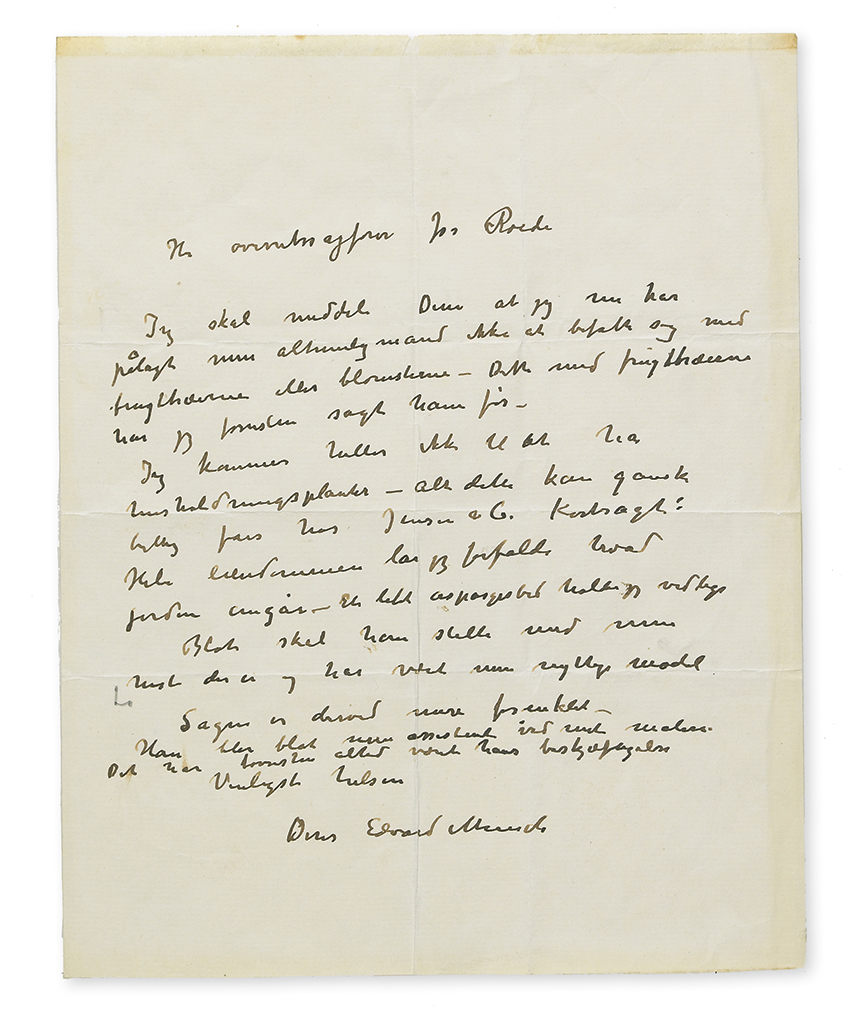 Hr overretssagfører Joh Roede
Jeg skal meddele Dem at jeg nu har
pålagt min altmuligmand ikke at befatte sig med
frugttræerne eller blomsterne – Dette med frugttræerne
har jeg forresten sagt ham før –
Jeg kommer heller ikke til at ha
husholdningsplanter – alt dette kan ganske
billig faas hos Jensen & Co. Kortsagt:
Hele eiendommen lar jeg forfalde hvad
jorden angår – Et lidet aspargesbed holder jeg vedlige
Blot skal han stelle med min
hest der er og har vært min nyttige model
Sagen er derved mere forenklet –
Han blir blot min assistent ved mit maleri
Det har forresten altid været hans beskjæftigelse
Venligst hilsen
Deres Edvard Munch